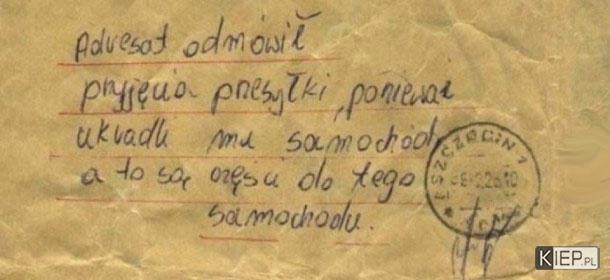 Adresat odmówił
przyjęcia przesyłki, ponieważ
ukradli mu samochód,
a to są części do tego
samochodu.
SZCZECIN 1
KIEP.PL